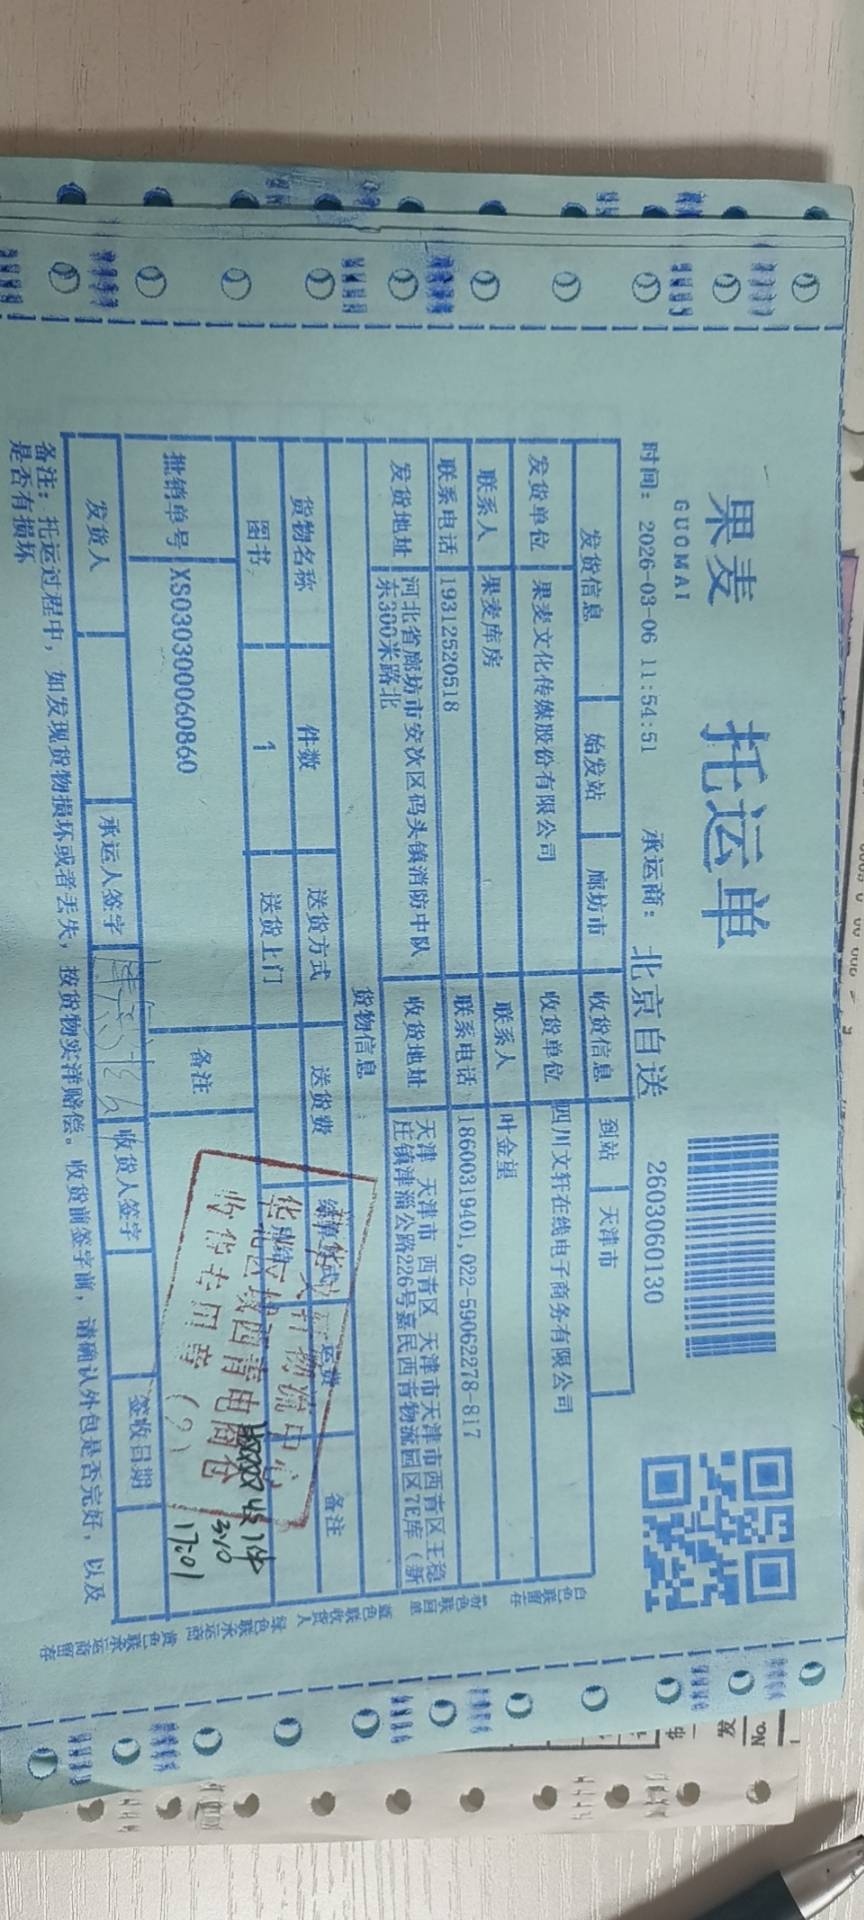 果麦
GUOMAI
托运单
时间：2026-03-06 11:54:51 承运商：北京自送 2603060130
发货信息 始发站 廊坊市 收货信息 到站 天津市
发货单位 果麦文化传媒股份有限公司 收货单位 四川文轩在线电子商务有限公司
联系人 果麦库房 联系人 叶金望
联系电话 19312520518 联系电话 18600319401,022-59062278-817
发货地址 河北省廊坊市安次区码头镇消防中队东300米路北 收货地址 天津 天津市 西青区 天津市天津市西青区王稳庄镇津淄公路226号嘉民西青物流园区7E库（新
货物信息
货物名称 件数 送货方式 送货费 运费 备注
图书 1 送货上门
批销单号 XS030300060860 备注
物流中心
华北区域西青电商仓
收货专用章
17:01
发货人 承运人签字 收货人签字 签收日期
备注：托运过程中，如发现货物损坏或者丢失，按货物实洋赔偿。收货前签字前，请确认外包是否完好，以及
是否有损坏
白色联留存
蓝色联收货人
绿色联承运商
黄色联承运商留存
No.
发